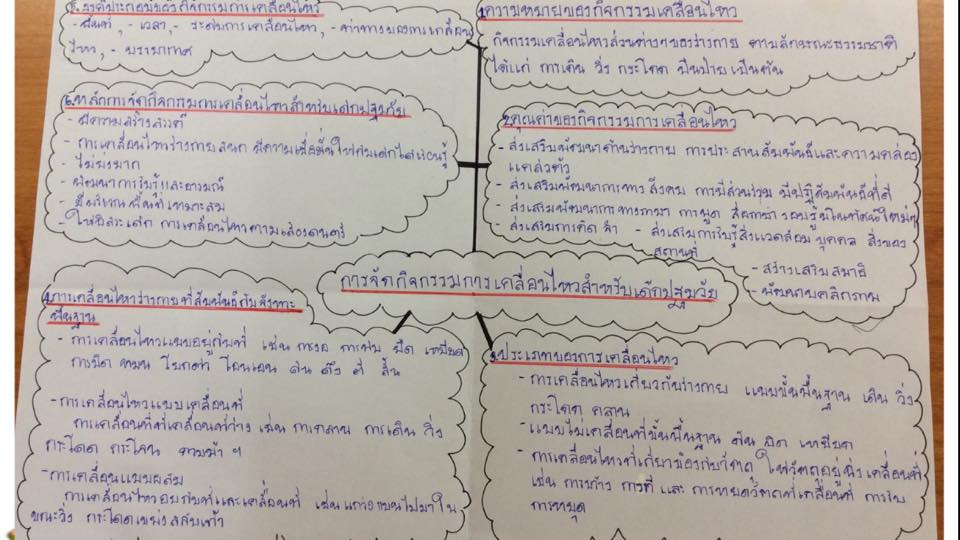 1.ความหมายของกิจกรรมเคลื่อนไหว
กิจกรรมเคลื่อนไหวส่วนต่างๆของร่างกาย ตามลักษณะธรรมชาติ
ได้แก่ การเดิน วิ่ง กระโดด ปีนป่าย เป็นต้น
2.คุณค่าของกิจกรรมการเคลื่อนไหว
- ส่งเสริมพัฒนาด้านร่างกาย การประสานสัมพันธ์และความคล่อง
แคล่วตัว
- ส่งเสริมพัฒนาการทางสังคม การมีส่วนร่วม มีปฏิสัมพันธ์ที่ดี
- ส่งเสริมพัฒนาการทางภาษา การพูด
- ส่งเสริมการคิด - ส่งเสริมการรับรู้สิ่งแวดล้อม บุคคล สิ่งของ
สถานที่
- สร้างเสริมสมาธิ
- พัฒนาบุคลิกภาพ
การจัดกิจกรรมการเคลื่อนไหวสำหรับเด็กปฐมวัย
3.ประเภทของการเคลื่อนไหว
- การเคลื่อนไหวเกี่ยวกับร่างกาย แบบขั้นพื้นฐาน เดิน วิ่ง
กระโดด คลาน
- แบบไม่เคลื่อนที่ขั้นพื้นฐาน ดัน บิด เหยียด
- การเคลื่อนไหวที่เกี่ยวข้องกับวัตถุ เคลื่อนที่
เช่น การขว้าง การตี และ การหยุดวัตถุที่เคลื่อนที่ การรับ
การหยุด
4.การเคลื่อนไหวร่างกายที่สัมพันธ์กับจังหวะ
พื้นฐาน
- การเคลื่อนไหวแบบอยู่กับที่ เช่น การงอ การพับ ยืด เหยียด
การบิด หมุน โยกตัว โอนเอน ดัน ดึง ตี สั่น
- การเคลื่อนไหวแบบเคลื่อนที่
การเคลื่อนที่ที่เคลื่อนที่ เช่น การคลาน การเดิน วิ่ง
กระโดด กระโจน ควบม้า ฯ
- การเคลื่อนแบบผสม
การเคลื่อนไหวอยู่กับที่และเคลื่อนที่ เช่น แกว่งแขนไปมาใน
ขณะวิ่ง กระโดดเขย่งสลับเท้า
5.องค์ประกอบของกิจกรรมการเคลื่อนไหว
- พื้นที่, - เวลา, - ระดับการเคลื่อนไหว, - ท่าทางของการเคลื่อน
ไหว, - บรรยากาศ
6.หลักการจัดกิจกรรมการเคลื่อนไหวสำหรับเด็กปฐมวัย
- มีความสร้างสรรค์
- การเคลื่อนไหวร่างกายสนุก
- ไม่ยุ่งยาก
- พัฒนาการรับรู้และอารมณ์
- มีบริเวณพื้นที่เหมาะสม
- ให้อิสระเด็ก การเคลื่อนไหวตามเสียงดนตรี